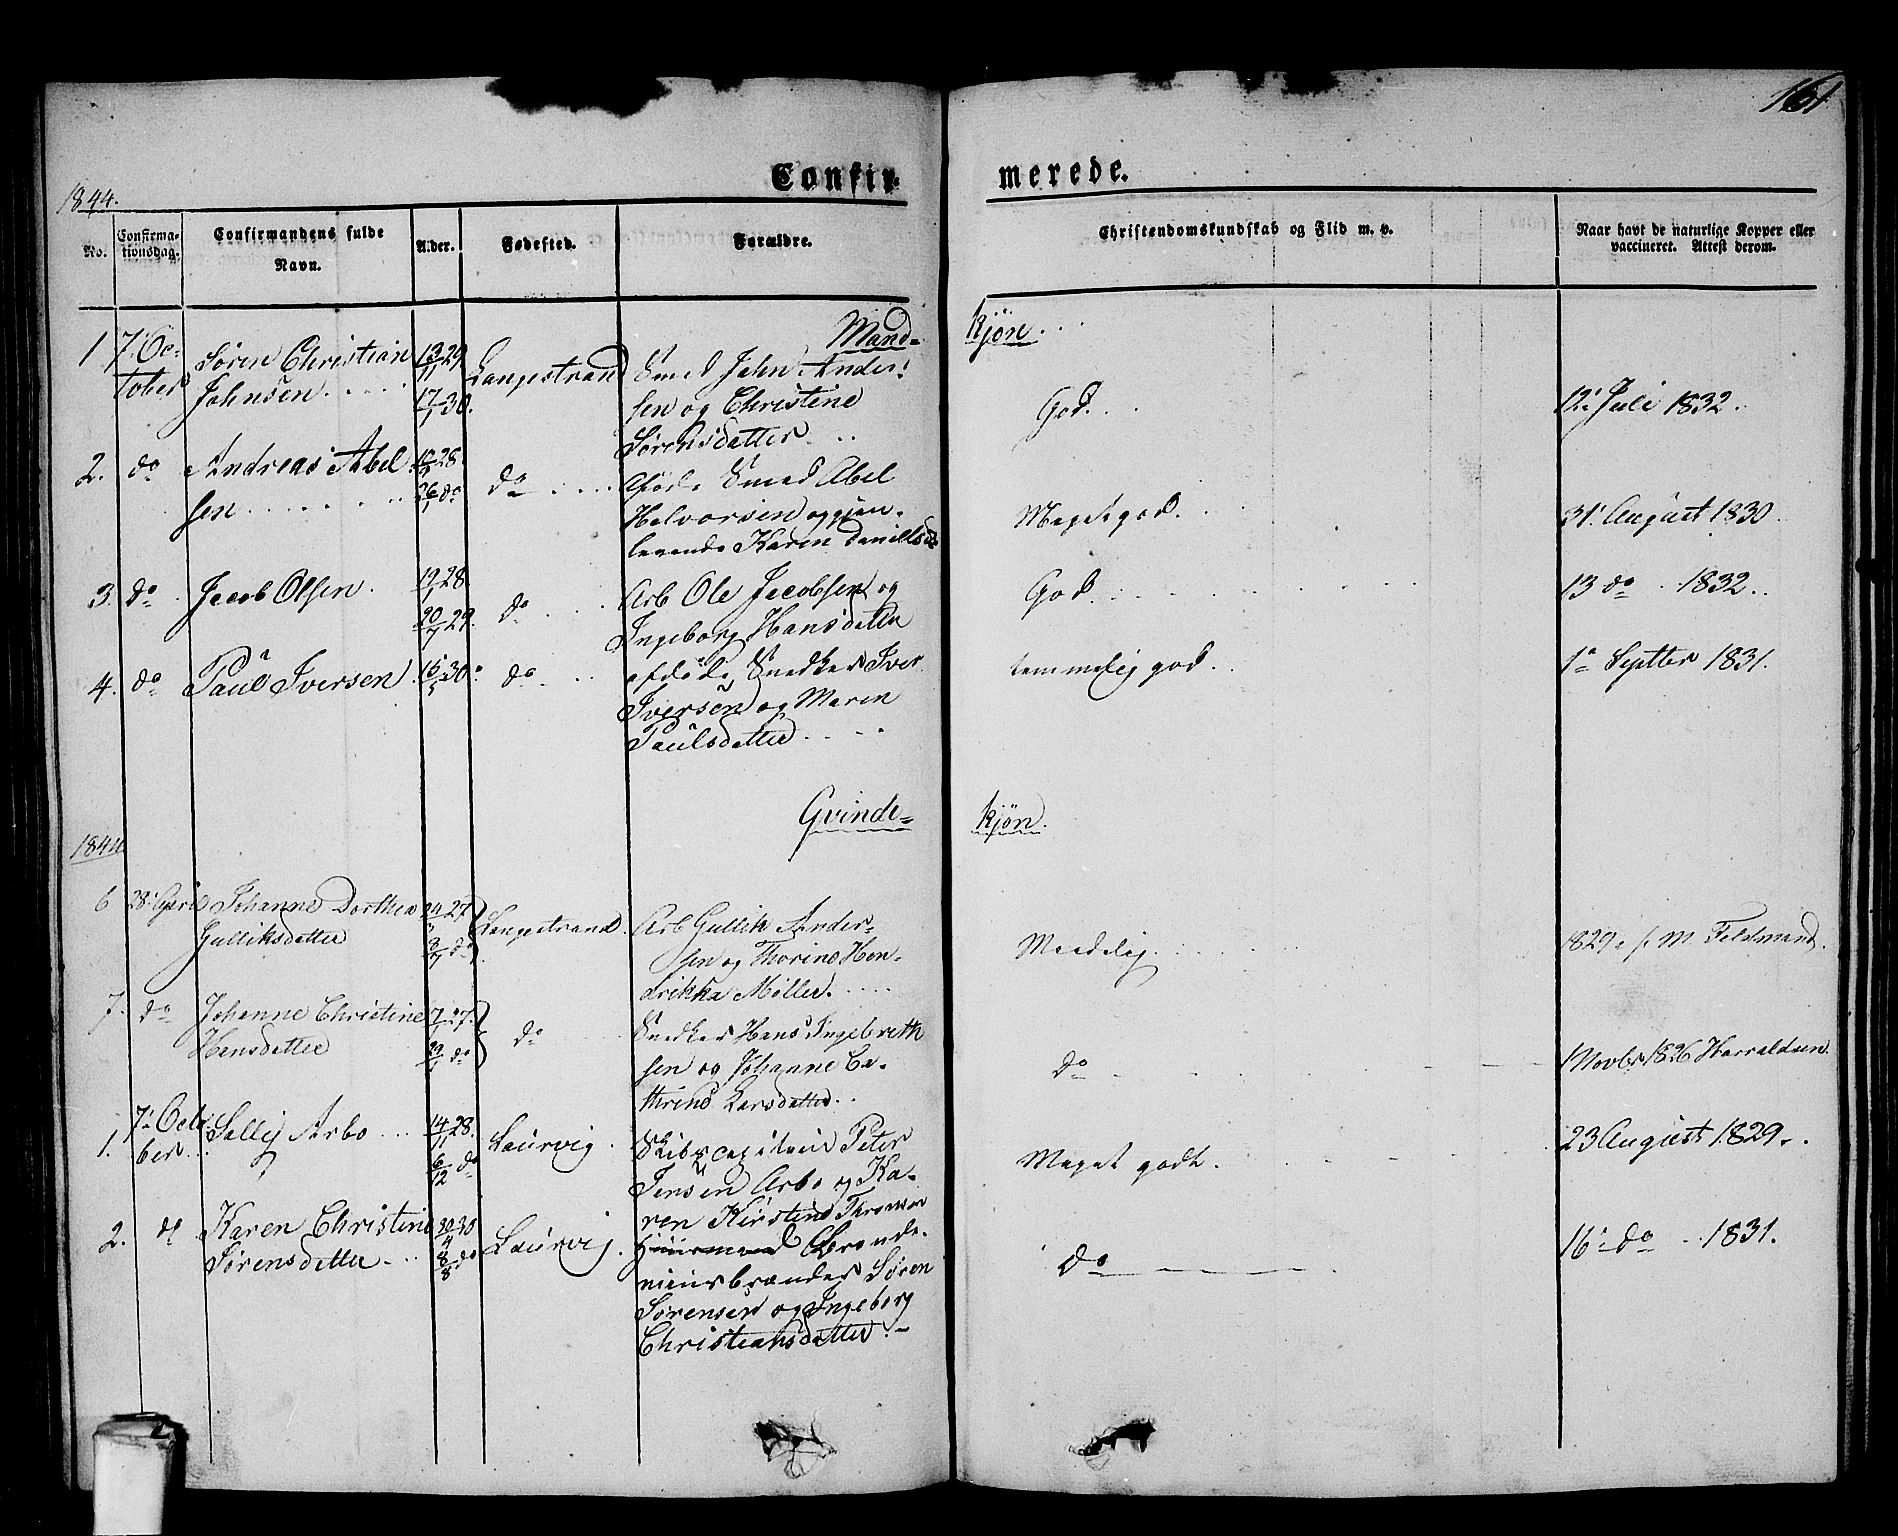 161
Confir-
merede.
1844.
No.
Confirma-
tionsdag.
Confirmandens fulde
Navn.
Alder.
Fødested.
Forældre.
Christendomskundskab og Flid m. v.
Naar havt de naturlige Kopper eller
vaccineret. Attest derom.
Mand-
kjøn...
1 7. Oc-
tober
Søren Christian
Johnsen.....
13/11 29
17/1 30.
Langestrand
Smed John Ander-
sen og Christine
Sørensdatter...
God...
12. Juli 1832.
2. do
Andreas Abel
sen........
28.
26/1 do
do.....
Afød. Smed Abel
Halvorsen og gjen-
levende Karen Danielsd.
Meget god...
31. August 1830.
3. do.
Jacob Olsen.
12/1 28
20/7 29.
do....
Arb Ole Jacobsen og
Ingeborg Hansdatter
God......
13 do. 1832..
4. do.
Paul Iversen
15/5 30.
do...
afdøde Snedker Iver
Iversen og Maren
Paulsdatter....
temmelig god...
1. Septter 1831.
Qvinde-
kjøn.
1844
6 28. April
Johanne Dorthea
Gulliksdatter
27
8/7 do
Langestrand.
Arb Gullik Ander-
sen og Thorine Hen-
drikka Møller.....
Maadelig....
1829. f. M Feldmand.
7. do
Johanne Christine
Hansdatter
27.
do
do....
Snedker Hans Ingebreth
sen og Johanne Ca-
thrine Larsdatter..
do
1 Novbr 1826 Harraldsen.
1.
7. Octo
ber...
Sally Arbo...
14/11 28.
6/12 do
Laurvig.
Skibscapitain Peter
Jensen Arbo og Ka-
ren Kirstine Thronsen
Meget godt.
23 August 1829..
2. do
Karen Christine
Sørensdatter...
30/4 30
8/8 do
Laurvig.
Brænde-
viinsbrænder Søren
Sørensen og Ingeborg
Christiansdatter.-
do
16. do... 1831.